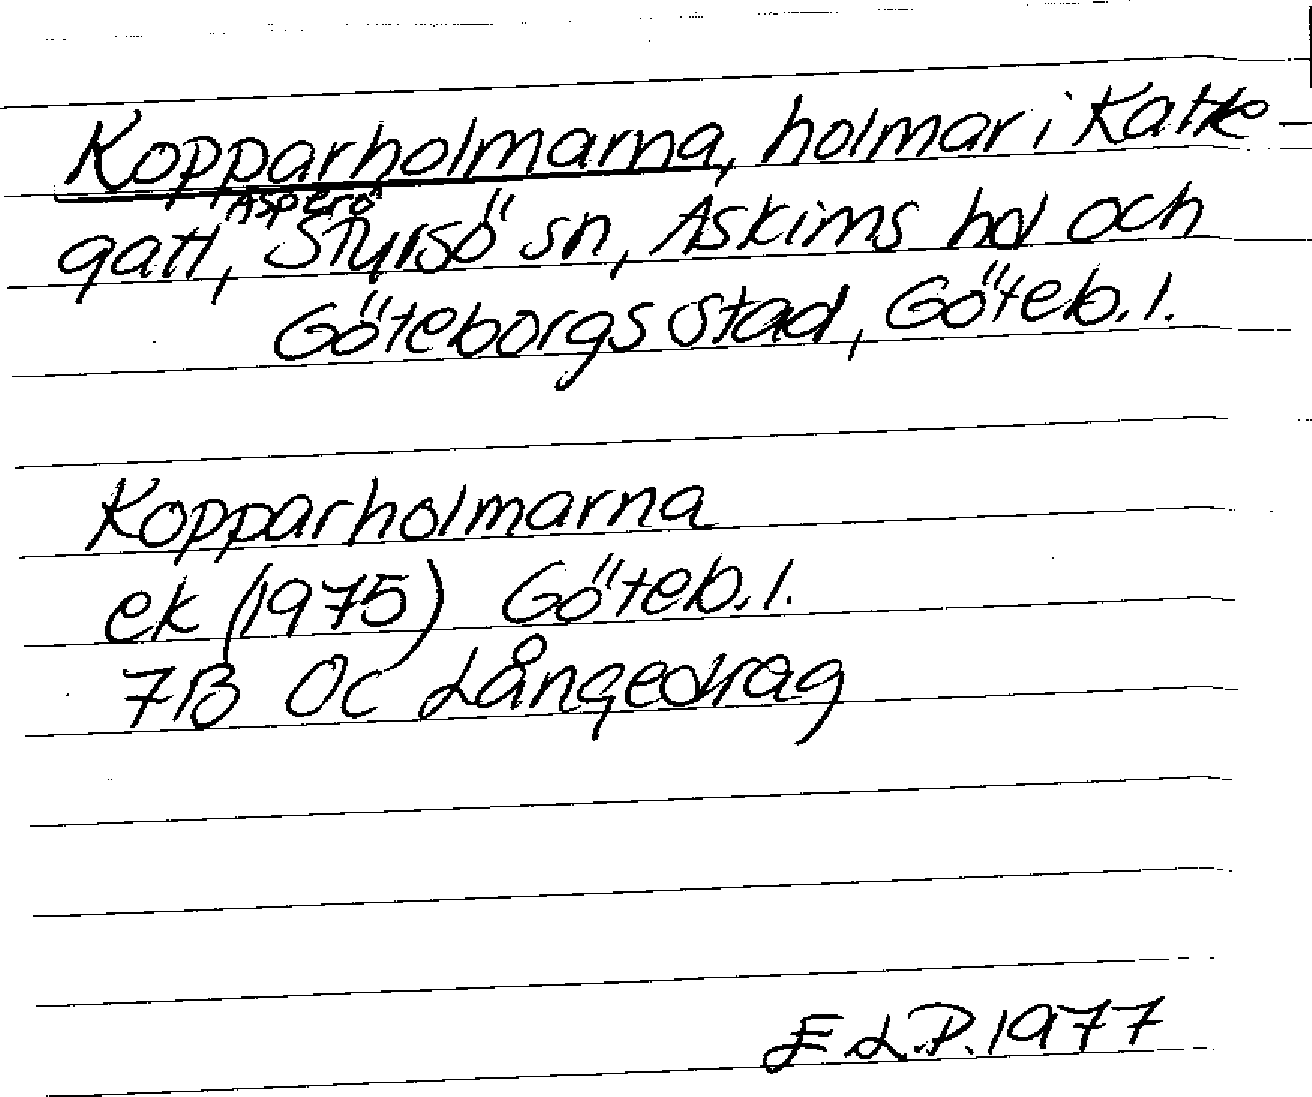 Kopparholmarna, holmar i Katte-
Asperö
gatt, Styrsö sn, Askims hd och
Göteborgs stad, Göteb. l.
Kopparholmarna
ek (1975) Göteb. l.
7B 0c Långedrag
E L.P. 1977